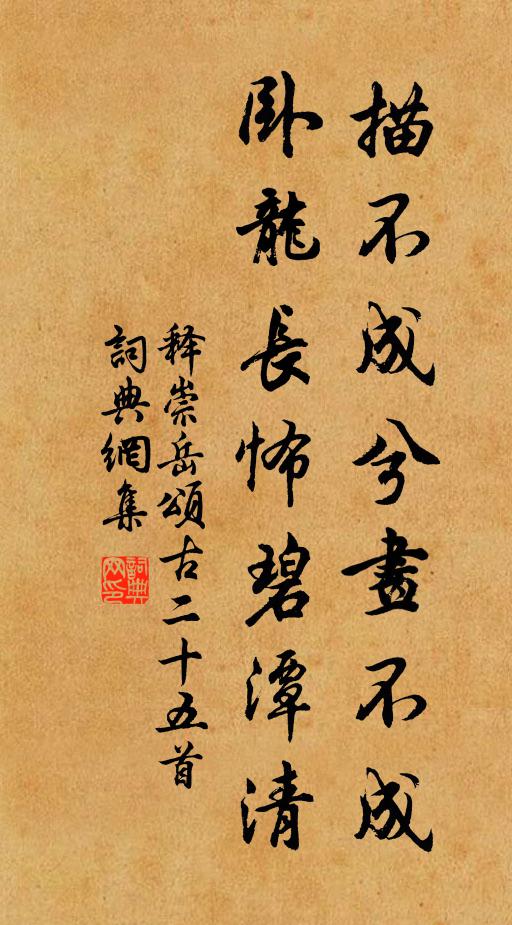 描不成兮畫不成
卧龍長怖碧潭清
释崇岳頌古二十五首
詞典網集
詞典網印